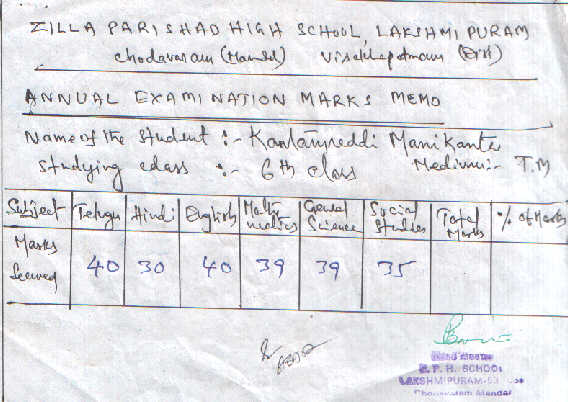 ZILLA PARISHAD HIGH SCHOOL, LAKSHMIPURAM
Chodavaram (Mandal) Visakhapatnam (Dist)
ANNUAL EXAMINATION MARKS MEMO
Name of the Student :- Kantamreddi Manikanta
Studying class :- 6th class Medium:- T.M
Subject Telugu Hindi English Mathematics General Science Social Studies Total Marks % of Marks
Marks Secured 40 30 40 39 39 35
Head Master
Z. P. H. SCHOOL
LAKSHMIPURAM-53
Chodavaram Mandal